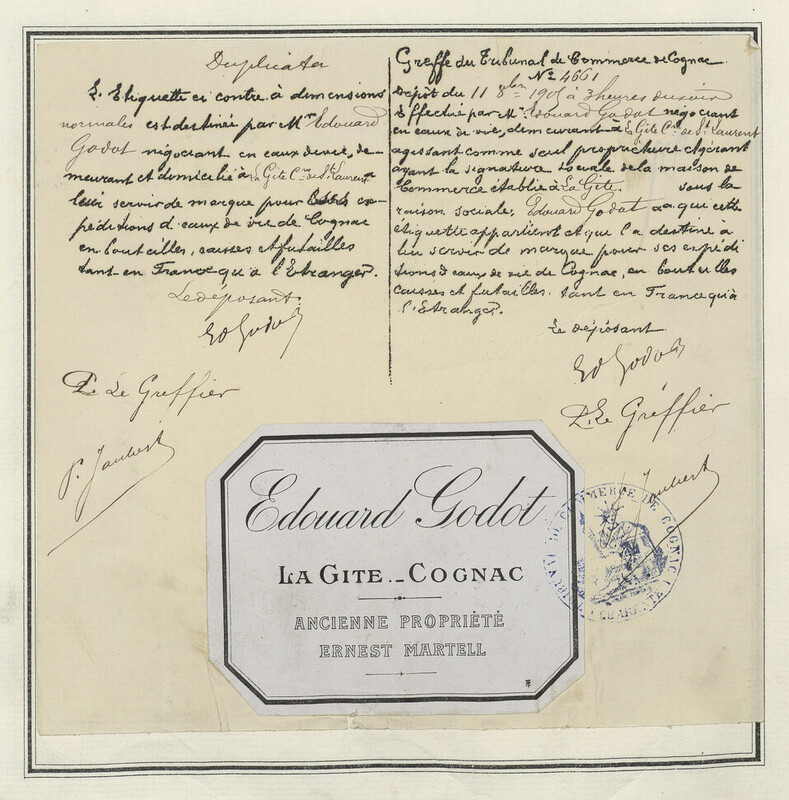 Duplicata
L'Etiquette ci contre à dimensions
normales est destinée par Mr Edouard
Godot négociant en eaux de vie, de-
meurant et domicilié à La Gite Cne de St Laurent à
leur servir de marque pour ex-
péditions d'eaux de vie de Cognac
en bouteilles, caisses et futailles
tant en France qu'à l'Etranger.
Le déposant
Ed Godot
P. Le Greffier
P. Jaubert
Greffe du Tribunal de Commerce de Cognac
No 4661
Dépôt du 11 8bre à 3 heures du soir
Effectué par Mr Edouard Godot négociant
en eaux de vie, demeurant à La Gite Cne de St Laurent
agissant comme seul propriétaire et gérant
ayant la signature sociale de la maison de
Commerce établie à La Gite. sous la
raison sociale: Edouard Godot à qui cette
étiquette appartient et qui l'a destiné à
lui servir de marque pour ses expédi
tions d'eaux de vie de Cognac, en bouteilles
caisses et futailles. tant en France qu'à
l'Etranger.
Le déposant
Ed Godot
P. Le Greffier
Jaubert
TRIBUNAL DE COMMERCE DE COGNAC
CHARENTE
Edouard Godot
LA GITE._COGNAC
ANCIENNE PROPRIÉTÉ
ERNEST MARTELL